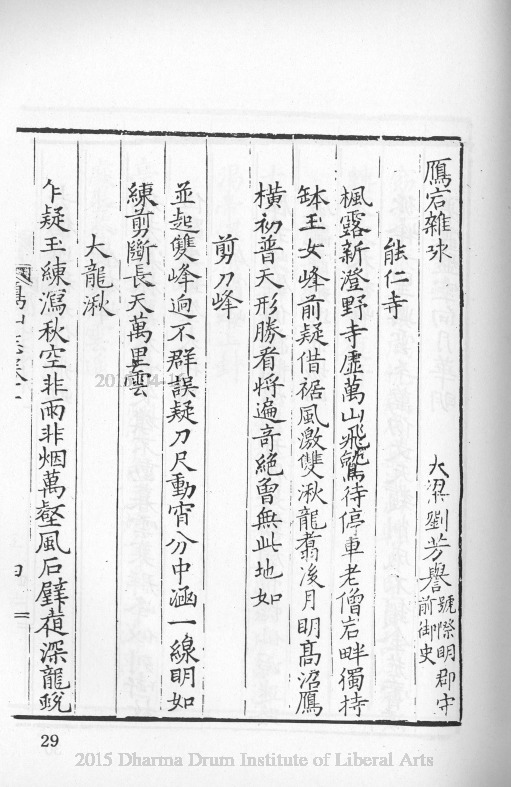 鴈宕雜咏
大梁劉芳譽號際明郡守前御史
能仁寺
楓露新澄野寺虛萬山飛鷲待停車老僧岩畔獨持
缽玉女峰前疑借裾風激雙湫龍蟄後月明高沼鴈
橫初普天形勝看將遍奇絕曾無此地如
剪刀峰
並起雙峰逈不群誤疑刀尺動宵分中涵一線明如
練剪斷長天萬里雲
大龍湫
乍疑玉練瀉秋空非雨非烟萬壑風石
深龍銳
四
29
2015 Dharma Drum Institute of Liberal Arts